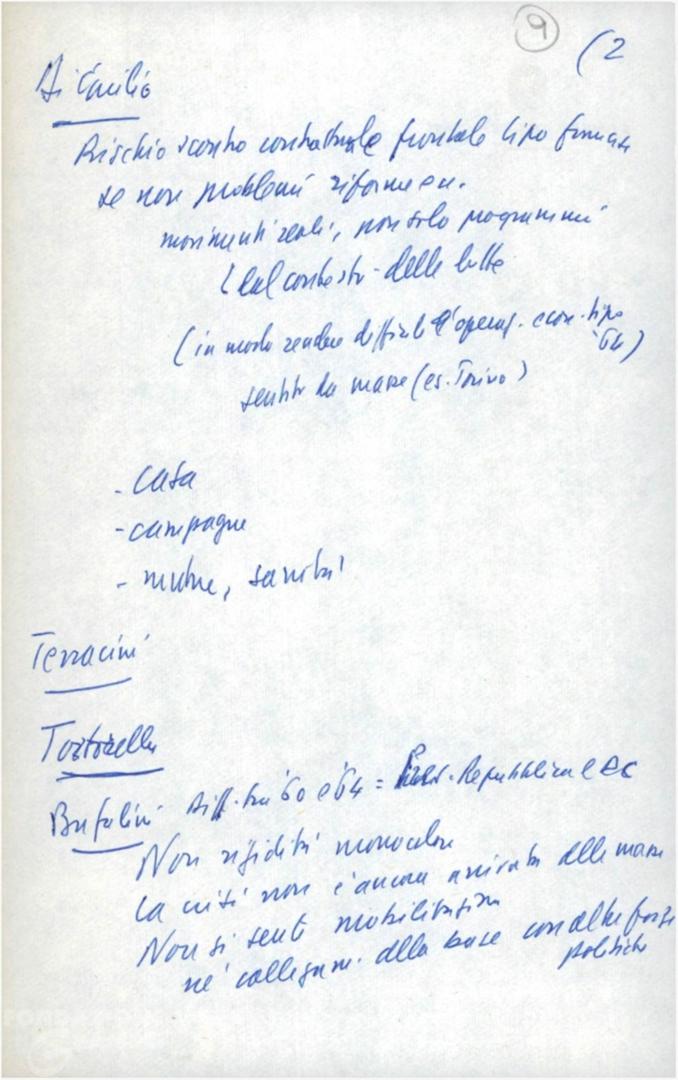 9
(2
Di Giulio
Rischio scontro contrattuale frontale tipo francese
se non problemi riforme ecc.
movimenti reali, non solo programmi
dal contesto delle lotte
(in modo rendere difficile l'operaz. econ. tipo
'64)
sentito da masse (es. Torino)
- casa
- campagne
- mutue, sanità
Terracini
Tortorella
Bufalini Diff. tra '60 e '64 = Pres. Repubblica e DC
Non rigidità monocolore
La crisi non è ancora arrivata alle masse
Non si sente mobilitazione
né collegam. alla base con altre forze
politiche